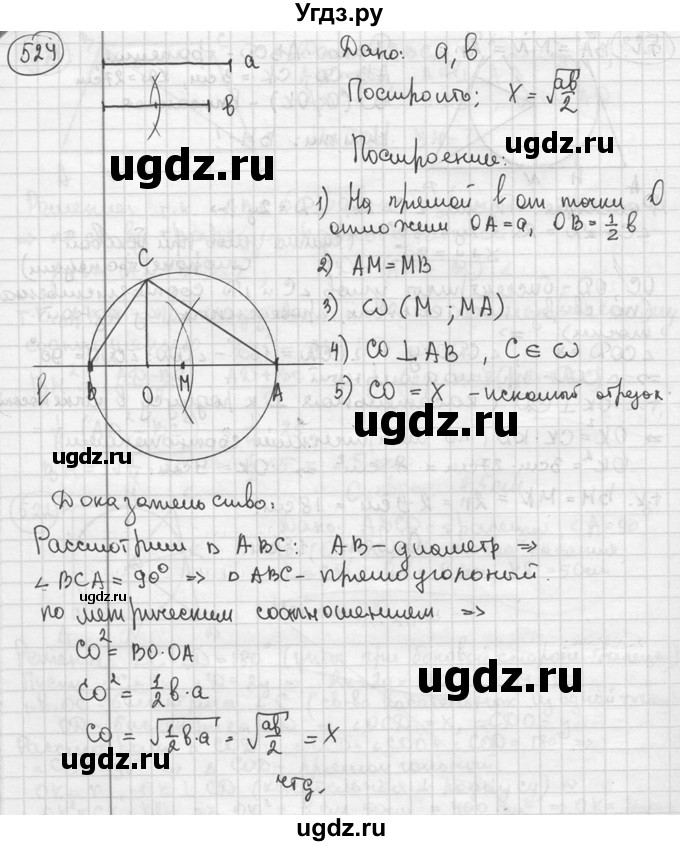 Угдз.ру
524
a
в
Дано: a, в
Построить: X = √(ав/2)
ugdz.ru
ugdz.ru
Построение:
1) На прямой l от точки O
отложим OA = a, OB = 1/2 в
2) AM = MB
3) ω (M ; MA)
4) CO ⊥ AB , C ∈ ω
5) CO = X - искомый отрезок.
C
l
B
O
M
A
ugdz.ru
ugdz.ru
Доказательство:
Рассмотрим △ ABC: AB - диаметр ⇒
∠ BCA = 90° ⇒ △ ABC - прямоугольный.
ugdz.ru
по метрическим соотношением ⇒
CO² = BO·OA
ugdz.ru
CO² = 1/2 в·a
CO = √(1/2 в·a) = √(ав/2) = X
ugdz.ru
чтд.
ugdz.ru